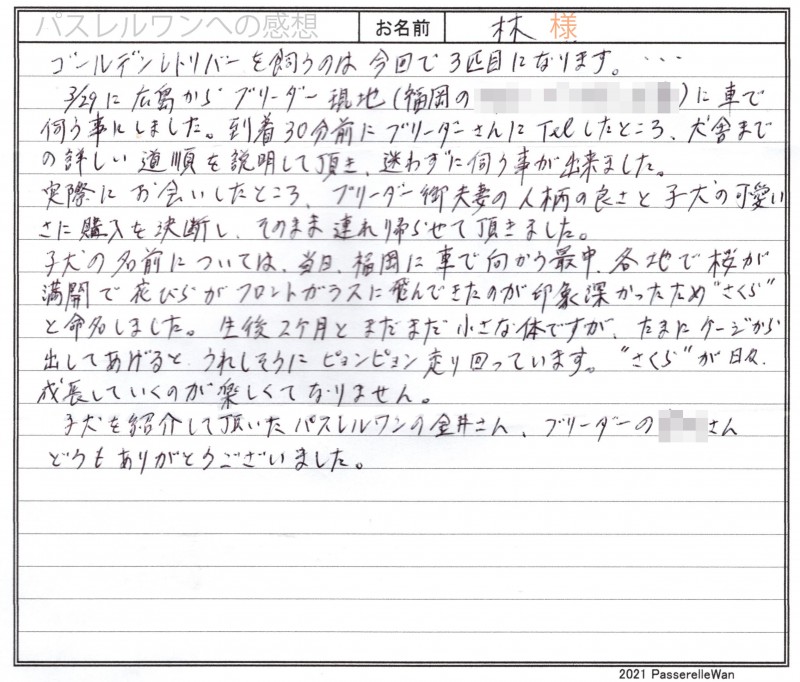 パスレルワンへの感想 お名前 林 様
ゴールデンレトリバーを飼うのは今回で3匹目になります。・・・
3/29に広島からブリーダー現地(福岡の)に車で
伺う事にしました。到着30分前にブリーダーさんにTelしたところ、犬舎まで
の詳しい道順を説明して頂き、迷わずに伺う事が出来ました。
実際にお会いしたところ、ブリーダー御夫妻の人柄の良さと子犬の可愛い
さに購入を決断し、そのまま連れ帰らせて頂きました。
子犬の名前については、当日、福岡に車で向かう最中、各地で桜が
満開で花びらがフロントガラスに飛んできたのが印象深かったため"さくら"
と命名しました。生後2ケ月とまだまだ小さな体ですが、たまにケージから
出してあげると、うれしそうにピョンピョン走り回っています。"さくら"が日々、
成長していくのが楽しくてなりません。
子犬を紹介して頂いたパスレルワンの金井さん、ブリーダーのさん
どうもありがとうございました。
2021 PasserelleWan